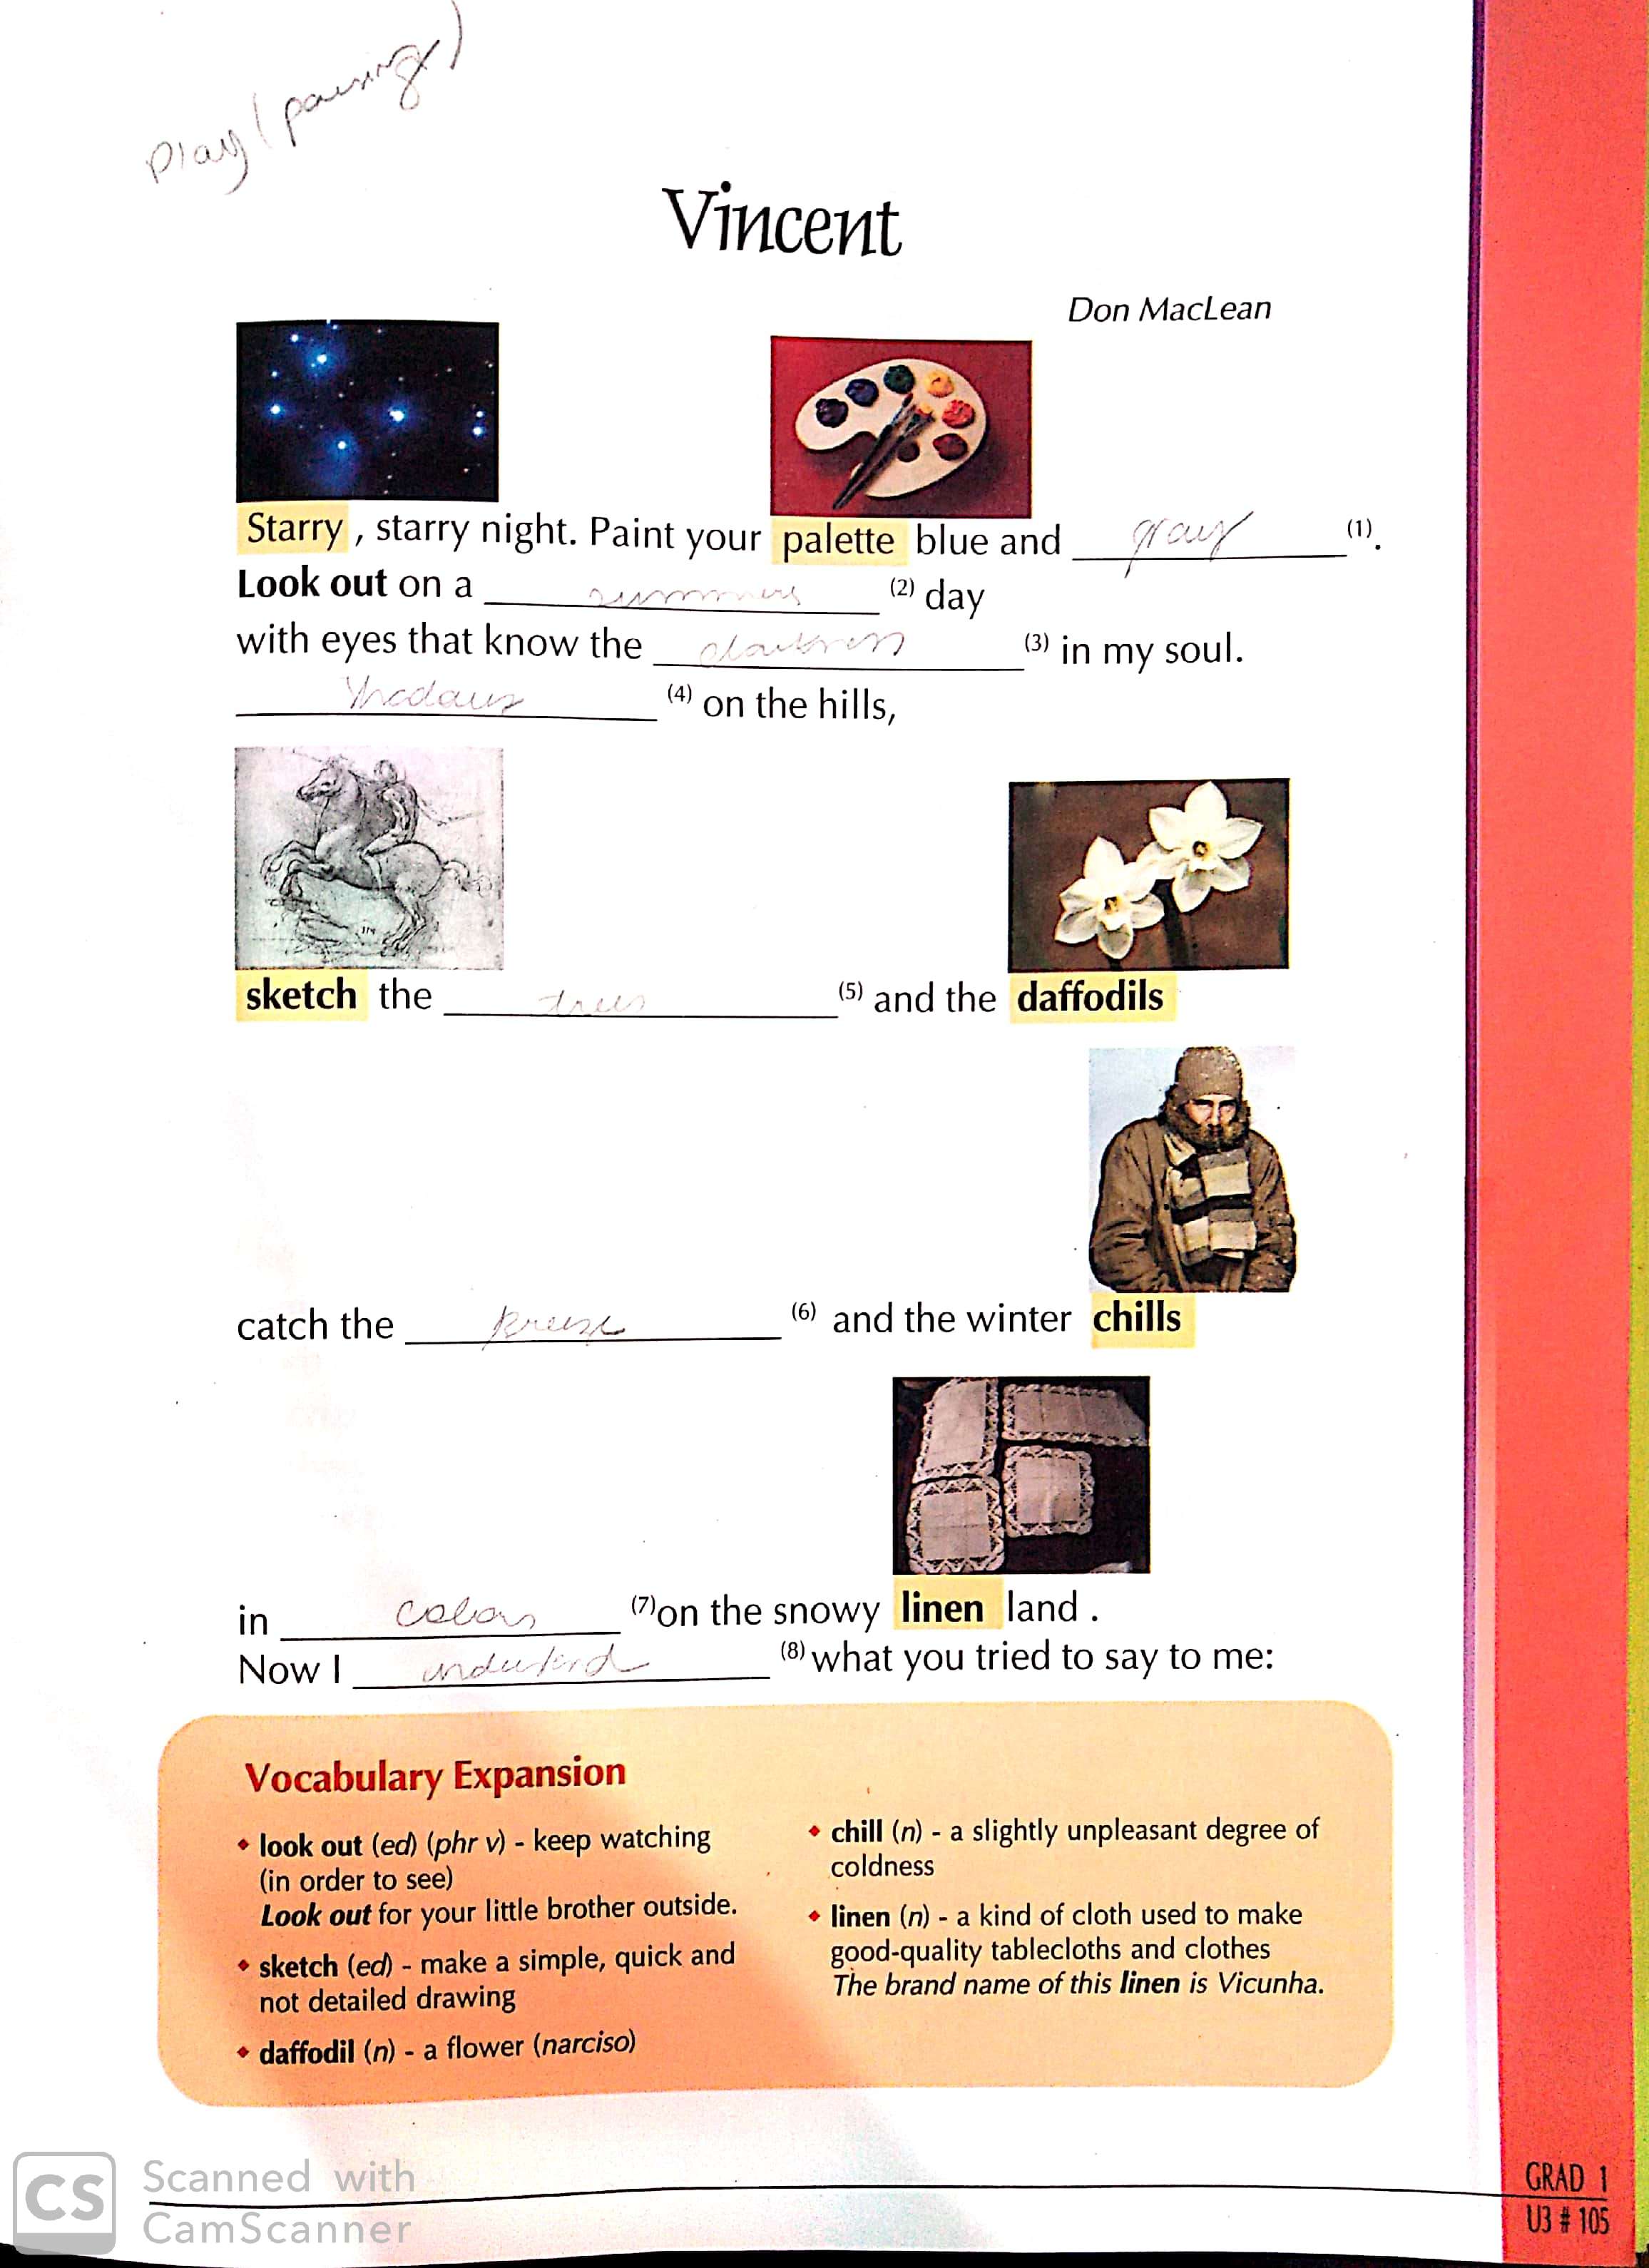 Play (pausing)
Vincent
Don MacLean
Starry, starry night. Paint your palette blue and gray (1).
Look out on a summers (2) day
with eyes that know the darkness (3) in my soul.
Shadows (4) on the hills,
sketch the trees (5) and the daffodils
catch the breeze (6) and the winter chills
in colors (7) on the snowy linen land .
Now I understand (8) what you tried to say to me:
Vocabulary Expansion
• look out (ed) (phr v) - keep watching
(in order to see)
Look out for your little brother outside.
• sketch (ed) - make a simple, quick and
not detailed drawing
• daffodil (n) - a flower (narciso)
• chill (n) - a slightly unpleasant degree of
coldness
• linen (n) - a kind of cloth used to make
good-quality tablecloths and clothes
The brand name of this linen is Vicunha.
CS Scanned with
CamScanner
GRAD 1
U3 # 105